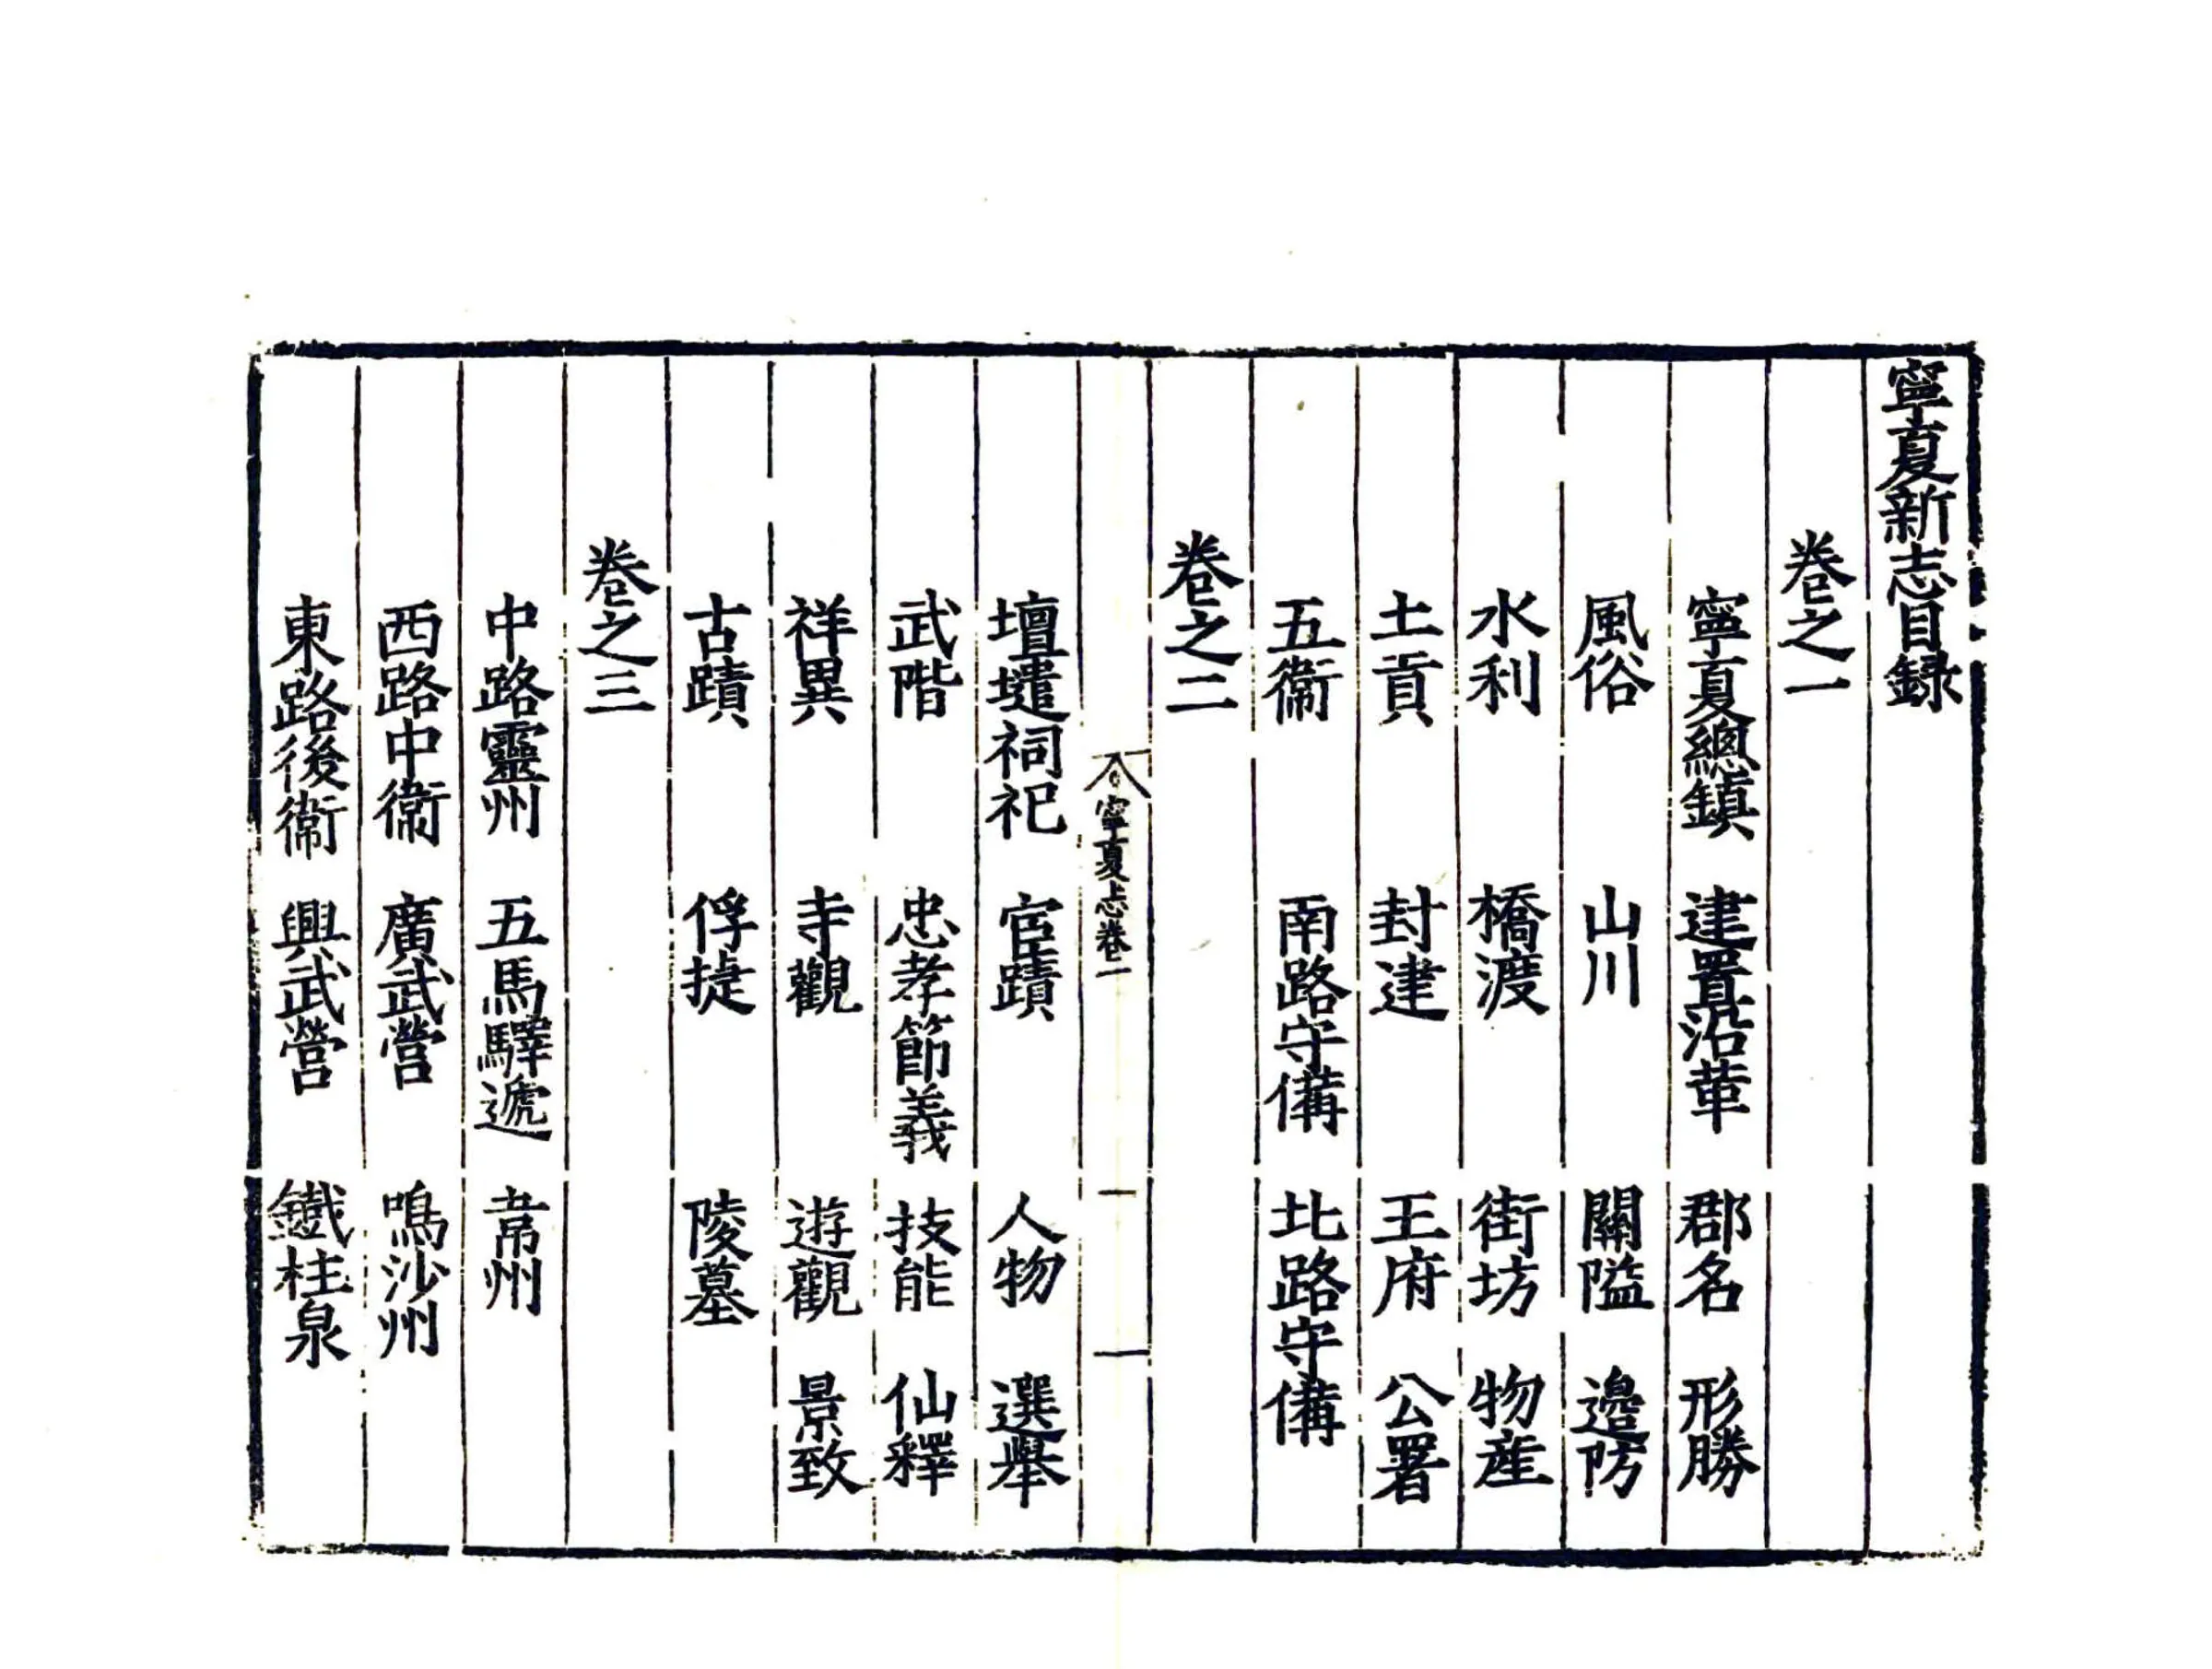 寧夏新志目録
卷之一
寧夏總鎮 建置沿革 郡名 形勝
風俗 山川 關隘 邉防
水利 橋渡 街坊 物産
土貢 封建 王府 公署
五衞 南路守備 北路守備
卷之二
寧夏志卷一
一
壇壝祠祀 宦蹟 人物 選舉
武階 忠孝節義 技能 仙釋
祥異 寺觀 遊觀 景致
古蹟 俘捷 陵墓
卷之三
中路靈州 五馬驛遞 韋州
西路中衞 廣武營 鳴沙州
東路後衞 興武營 鐵柱泉